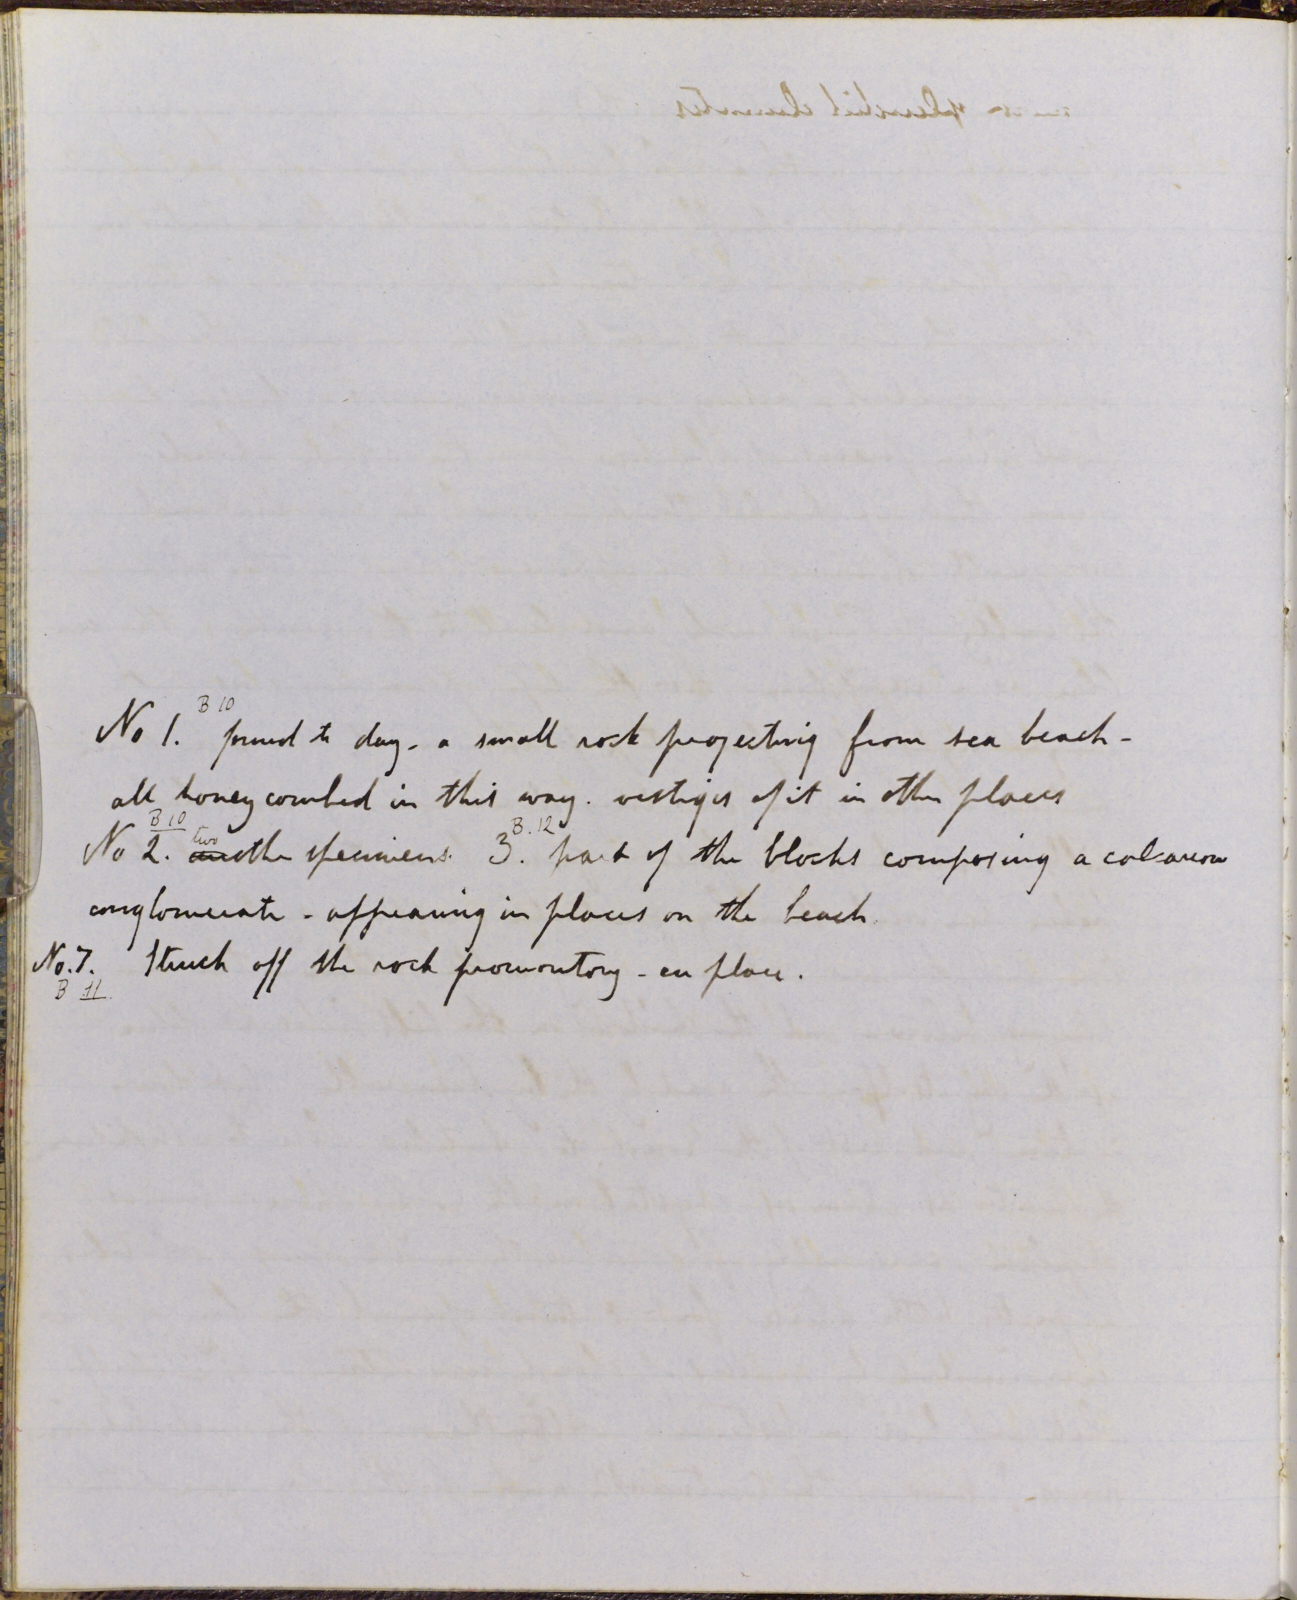 No 1. B 10 found to day - a small rock projecting from sea beach -
all honey combed in this way. vestiges of it in other places
No 2. B 10 two another specimens. 3. B. 12 part of the blocks composing a calcareous
conglomerate - appearing in places on the beach.
No. 7. Struck off the rock promontory - en place.
B 11